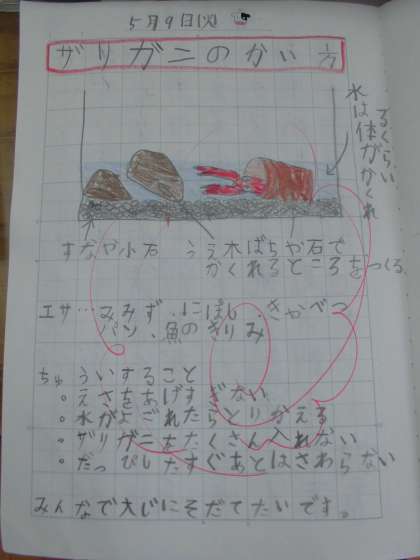 5月9日(火)
ザリガニのかい方
水は体がかくれるくらい
すなや小石
うえ木ばちや石でかくれるところをつくる
エサ…みみず、にぼし、きゃべつ
パン、魚のきりみ
ちゅういすること
。えさをあげすぎない
。水がよごれたらとりかえる
。ザリガニをたくさん入れない
。だっぴしたすぐあとはさわらない
みんなで大じにそだてたいです。